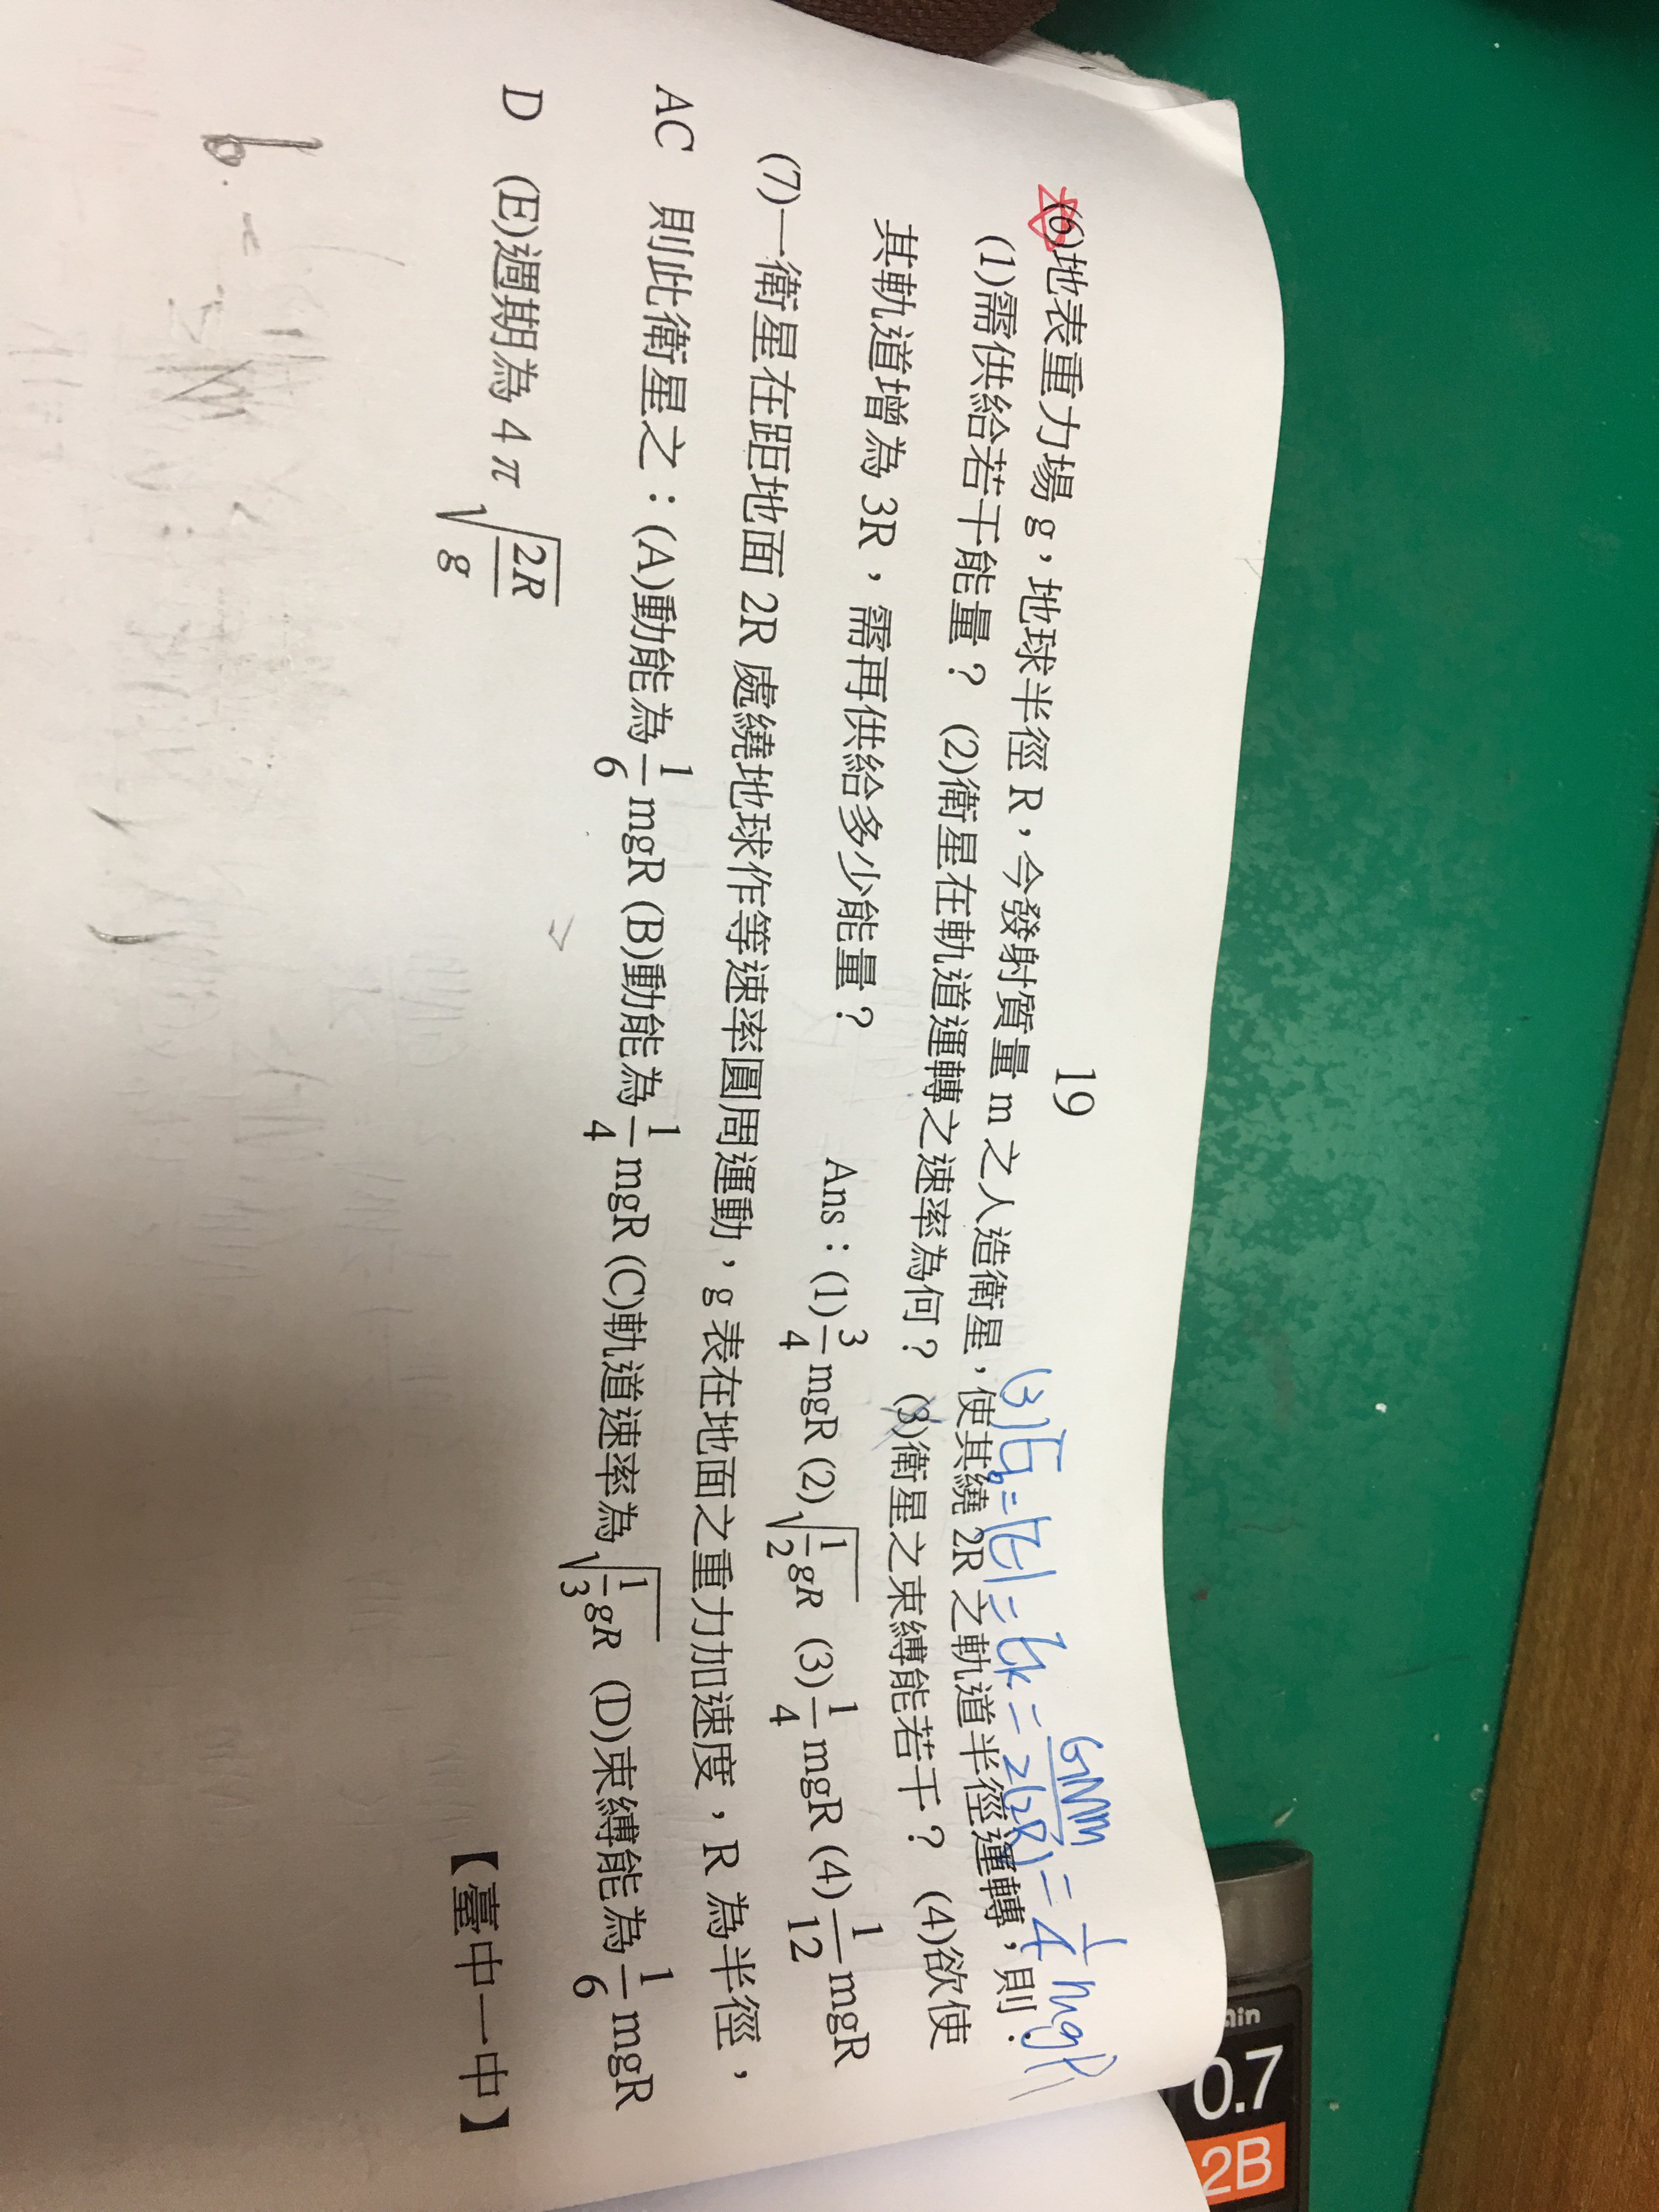 19
(3)E_b=|E|=E_k=\frac{GMm}{2(2R)}=\frac{1}{4}mgR
(6)地表重力場 g，地球半徑 R，今發射質量 m 之人造衛星，使其繞 2R 之軌道半徑運轉，則：
(1)需供給若干能量？ (2)衛星在軌道運轉之速率為何？ (3)衛星之束縛能若干？ (4)欲使
其軌道增為 3R，需再供給多少能量？ Ans：(1)\frac{3}{4}mgR (2)\sqrt{\frac{1}{2}gR} (3)\frac{1}{4}mgR (4)\frac{1}{12}mgR
(7)一衛星在距地面 2R 處繞地球作等速率圓周運動，g 表在地面之重力加速度，R 為半徑，
AC 則此衛星之：(A)動能為\frac{1}{6}mgR (B)動能為\frac{1}{4}mgR (C)軌道速率為\sqrt{\frac{1}{3}gR} (D)束縛能為\frac{1}{6}mgR
D (E)週期為 4π\sqrt{\frac{2R}{g}} 【臺中一中】
6.
ain
0.7
2B